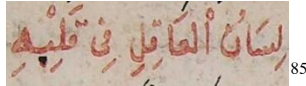 لِسَانُ الْعَاقِلِ فِي قَلْبِهِ 85